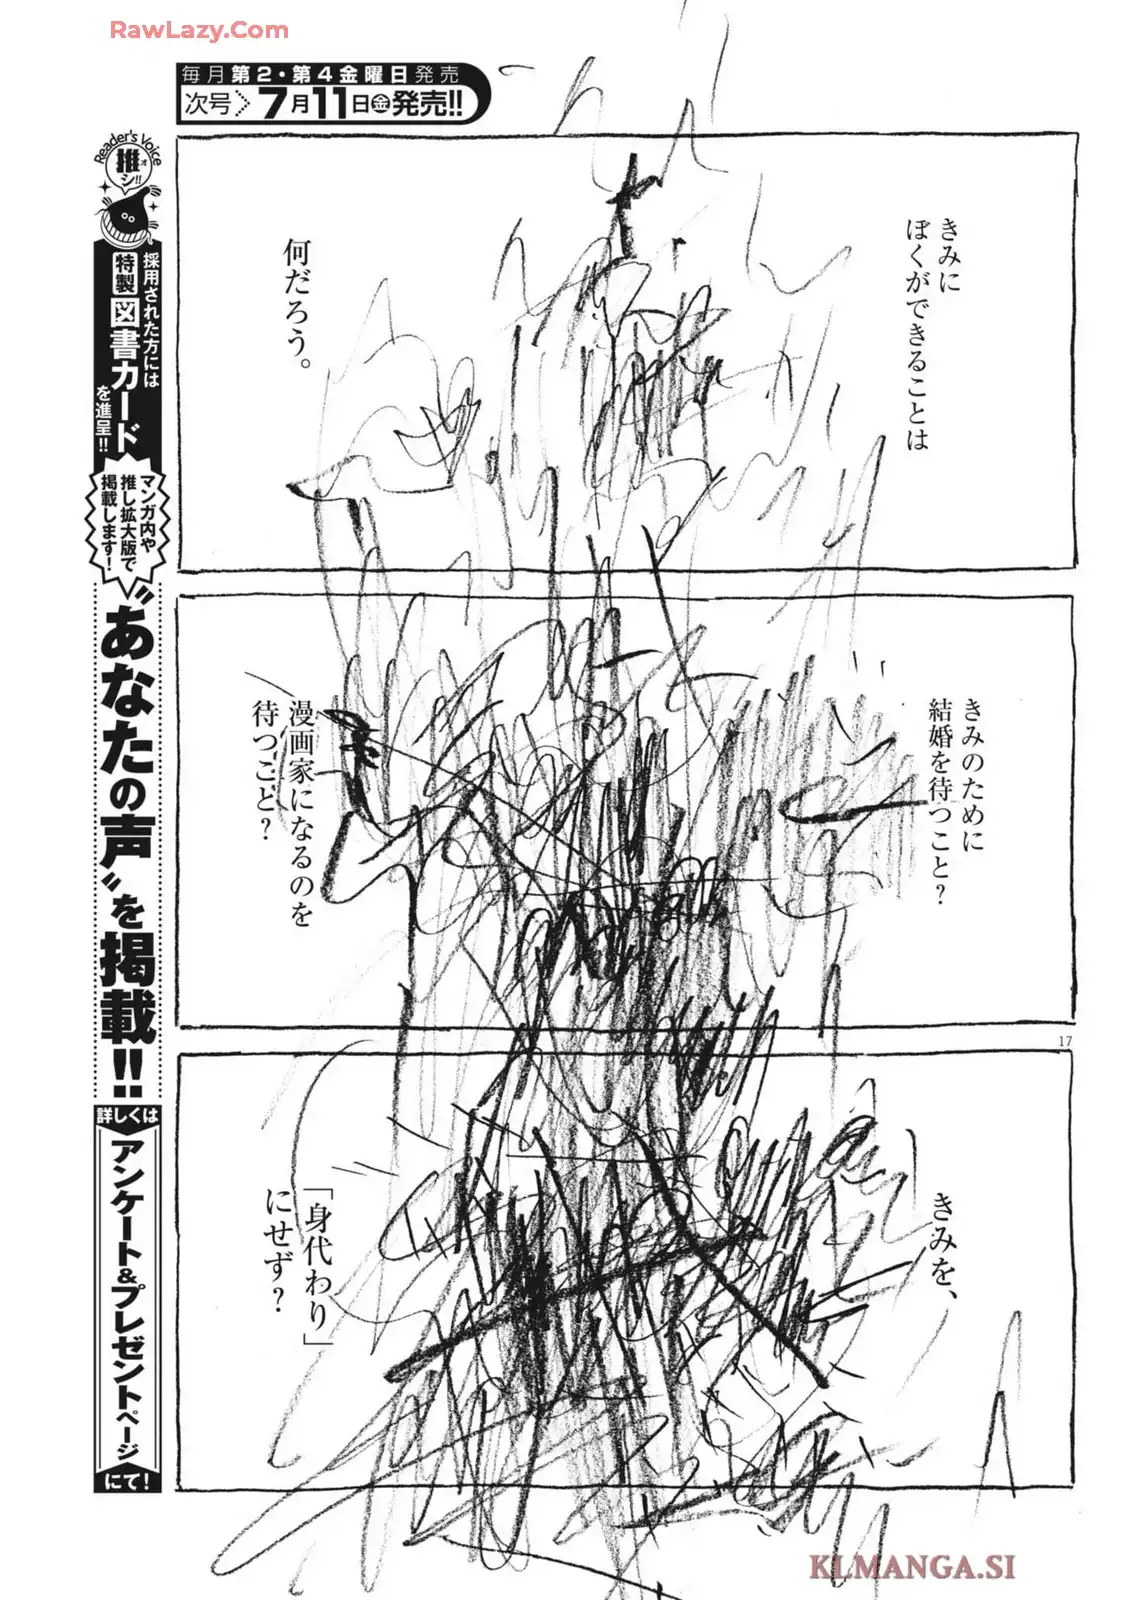 RawLazy.Com
毎月第2・第4金曜日発売
次号 7月11日金発売!!
Reader's Voice
推オシ!!
採用された方には
特製図書カード
を進呈!!
マンガ内や
推し拡大版で
掲載します!
"あなたの声"を掲載!!
詳しくは
アンケート&プレゼントページ
にて!
きみに
ぼくができることは
何だろう。
きみのために
結婚を待つこと?
漫画家になるのを
待つこと?
17
きみを、
「身代わり」
にせず?
KLMANGA.SI